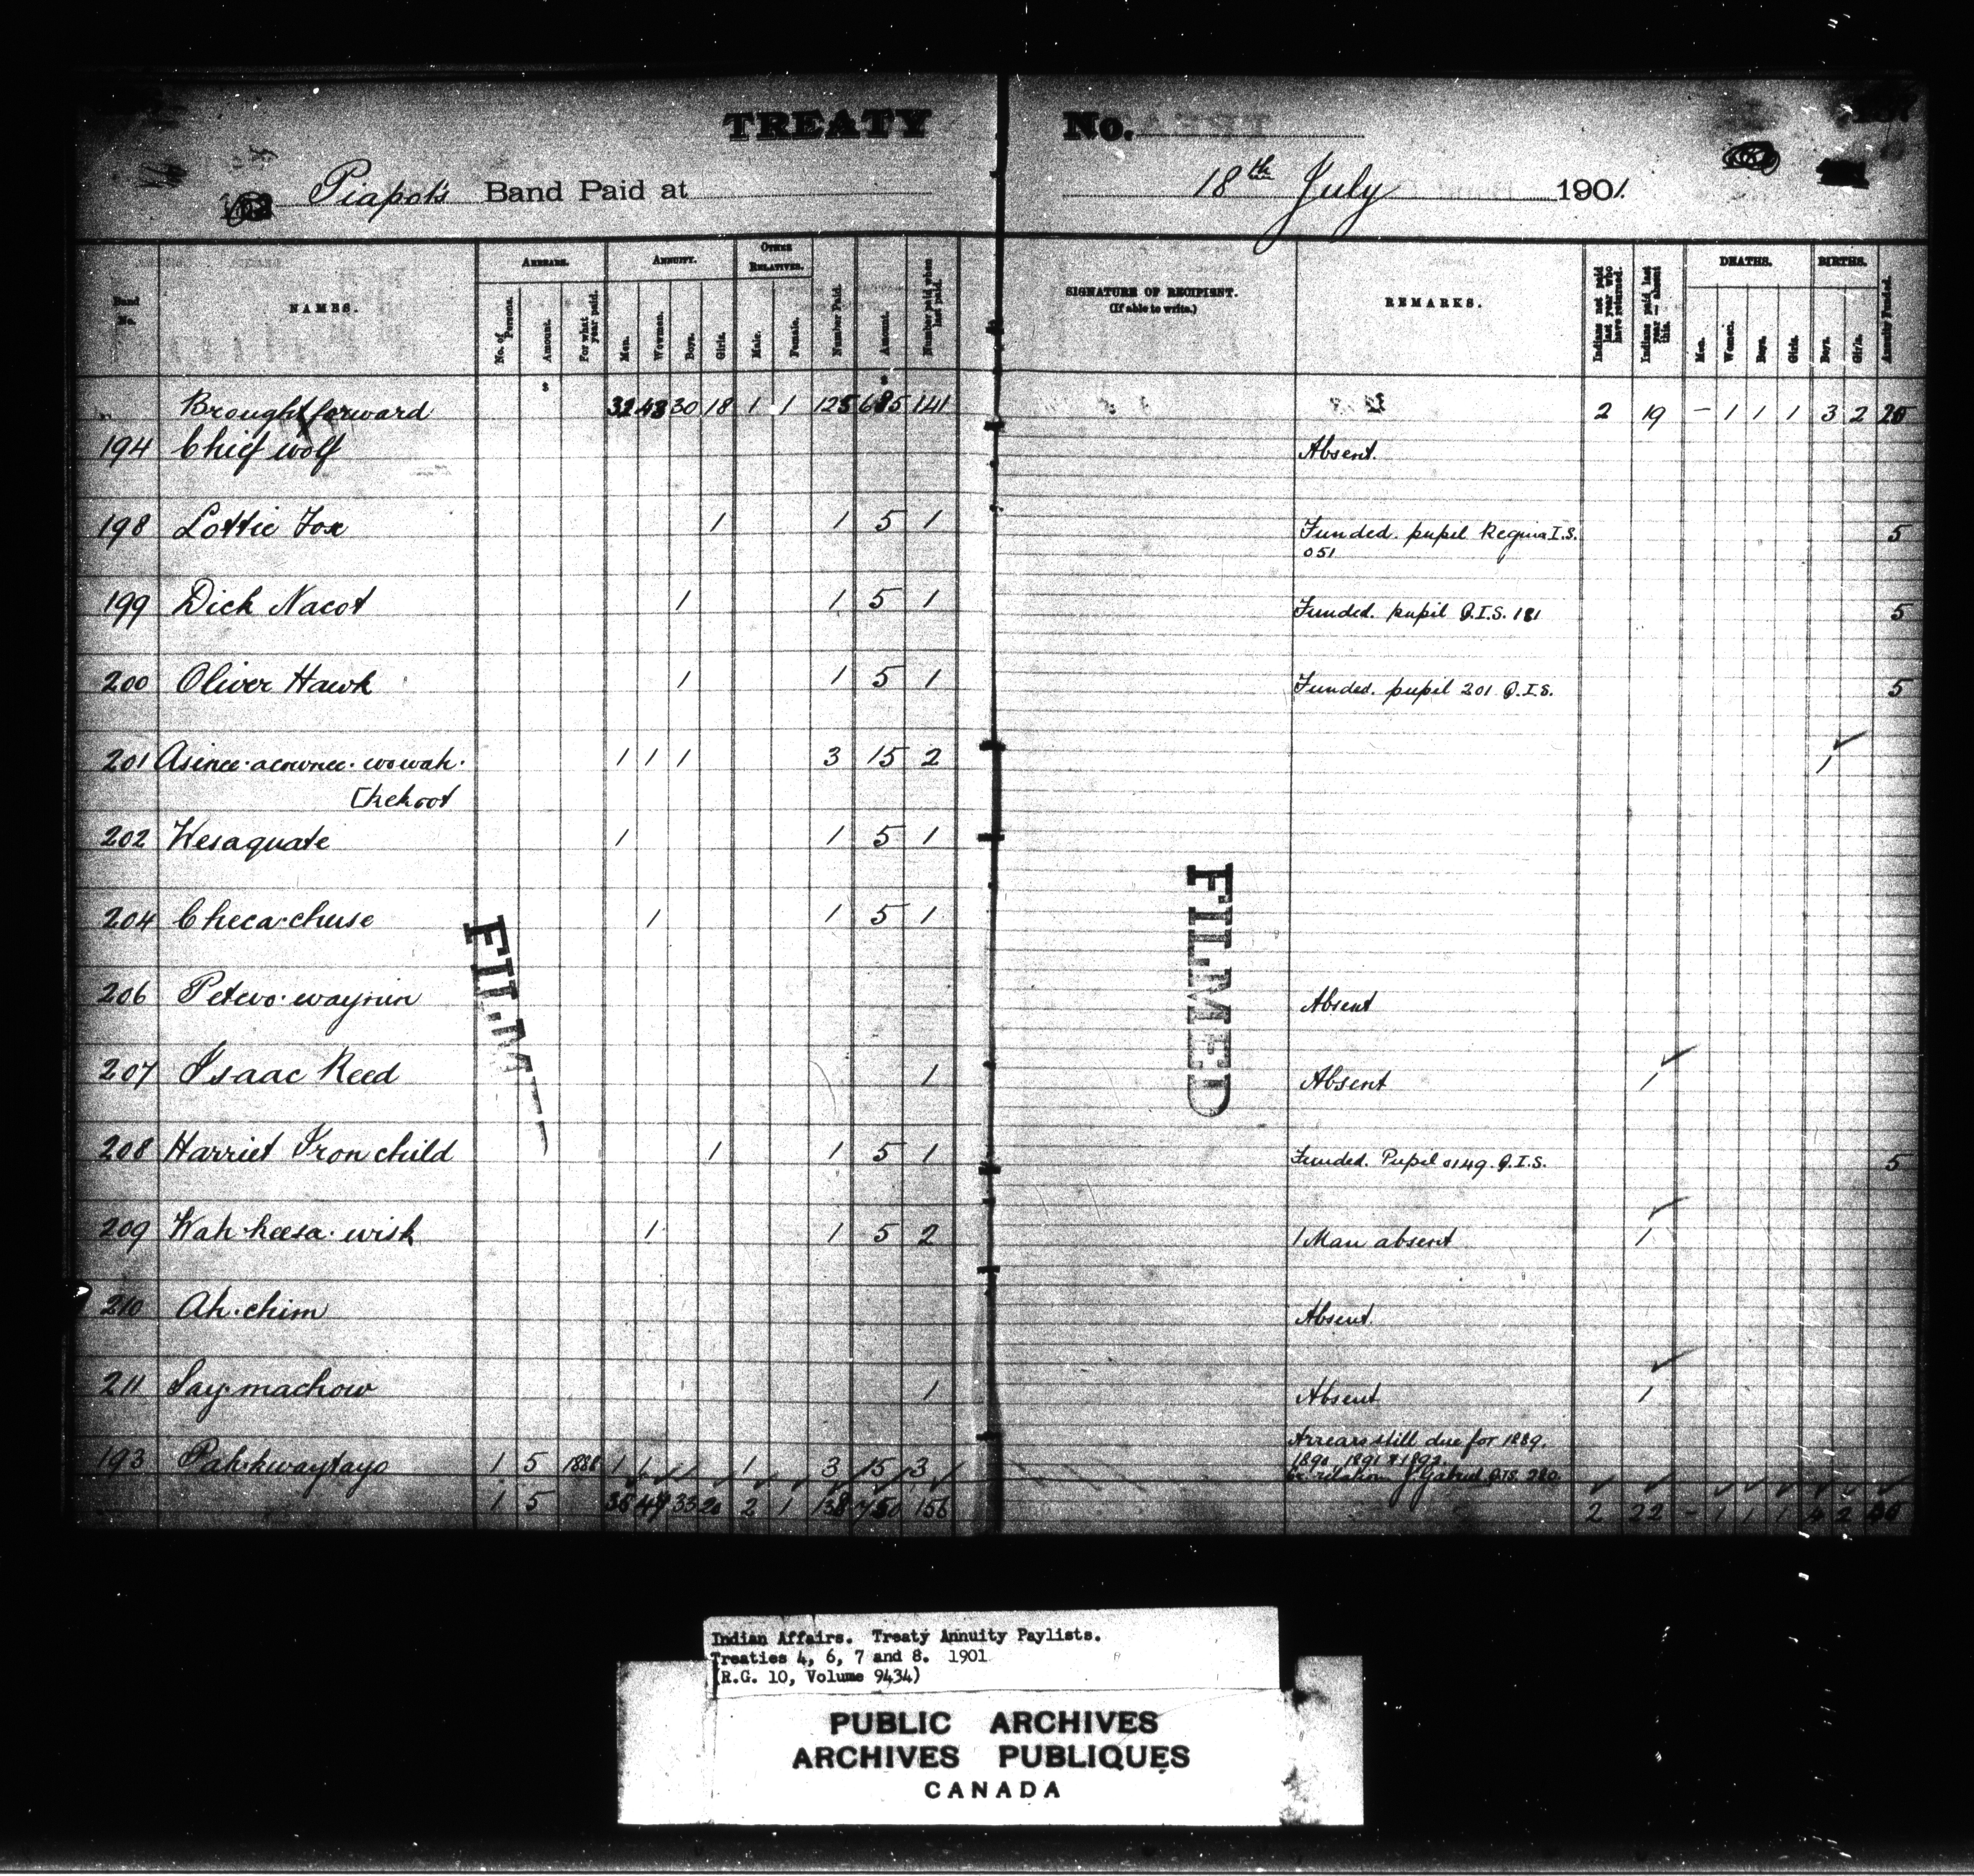 TREATY No.
Piapot's Band Paid at 18th July 1901.
Band No. NAMES. ARREARS. ANNUITY. OTHER RELATIVES. SIGNATURE OF RECIPIENT. (If able to write.) REMARKS. DEATHS. BIRTHS.
No. of Persons. Amount. For what year paid. Men. Women. Boys. Girls. Male. Female. Number Paid. Amount. Number paid when last paid. Indians not paid last year who have returned. Indians paid last year — absent this. Men. Women. Boys. Girls. Boys. Girls. Annuity Funded.
Brought forward 30 18 1 1 125 685 141 2 19 - 1 1 1 3 2
194 Chief wolf Absent.
198 Lottie Fox 1 1 5 1 Funded. pupil Regina I.S. 5
051
199 Dick Nacot 1 1 5 1 Funded. pupil Q.I.S. 181 5
200 Oliver Hawk 1 1 5 1 Funded. pupil 201 Q.I.S. 5
201 Asinee·acownee·wowah· 1 1 1 3 15 2 1
[kekoot
202 Kesaquate 1 1 5 1
204 Checa·chuse 1 1 5 1
206 Petewo·waynin Absent
207 Isaac Reed 1 Absent 1
208 Harriet Iron child 1 1 5 1 Funded. Pupil 0149. Q.I.S. 5
209 Wah·keesa·wish 1 1 5 2 1 Man absent 1
210 Ah·chim Absent.
211 Say·machow 1 Absent 1
Arrears still due for 1889.
193 Pah·kwaytayo 1 5 1888 1 1 1 3 15 3 1890. 1891 & 1892.
Gabriel Q.I.S. 280.
1 5 35 49 33 20 2 1 138 750 156 2 22 - 1 1 1 4 2
FILMED
FILM
Indian Affairs. Treaty Annuity Paylists.
Treaties 4, 6, 7 and 8. 1901
(R.G. 10, Volume 9434)
PUBLIC ARCHIVES
ARCHIVES PUBLIQUES
CANADA